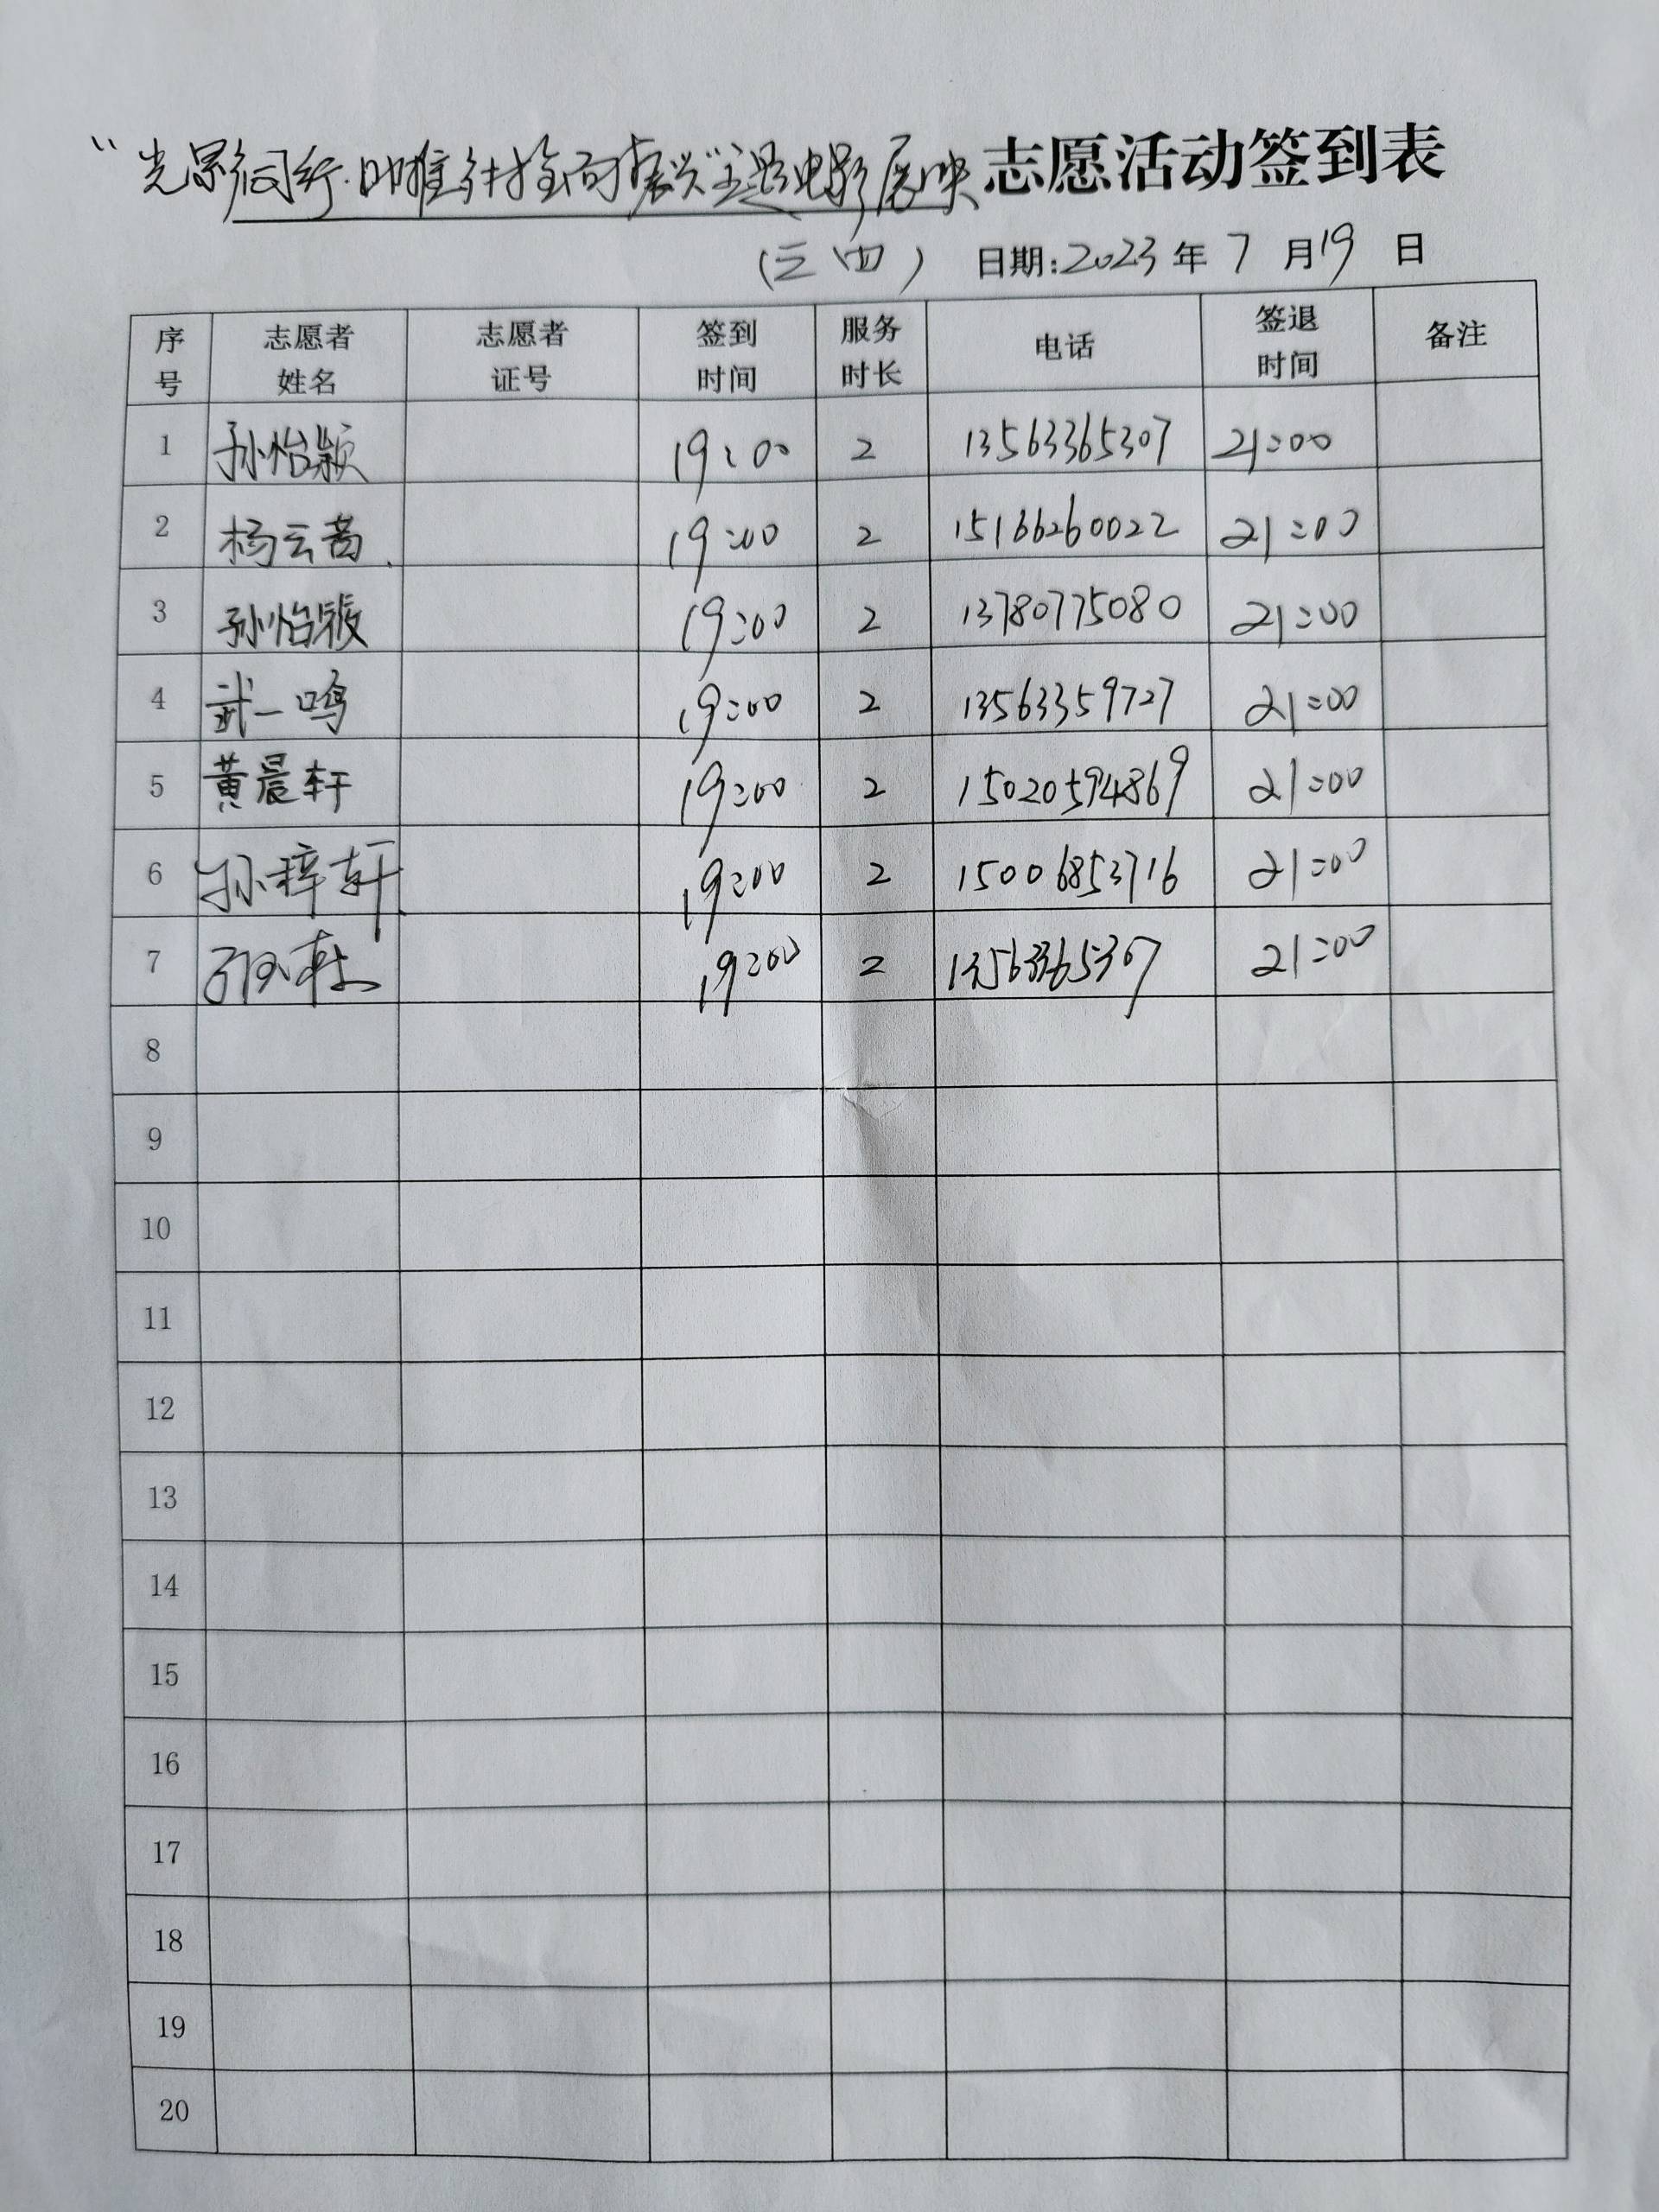 “光影同行·助推乡村全面振兴”主题电影展映志愿活动签到表
(三 四) 日期:2023年7月19日
序号 志愿者姓名 志愿者证号 签到时间 服务时长 电话 签退时间 备注
1 孙怡颖 19:00 2 13563365307 21:00
2 杨云茜 19:00 2 15166260022 21:00
3 孙怡 19:00 2 13780775080 21:00
4 武一鸣 19:00 2 13563359727 21:00
5 黄晨轩 19:00 2 15020594869 21:00
6 孙梓轩 19:00 2 15006853716 21:00
7 19:00 2 21:00
8
9
10
11
12
13
14
15
16
17
18
19
20